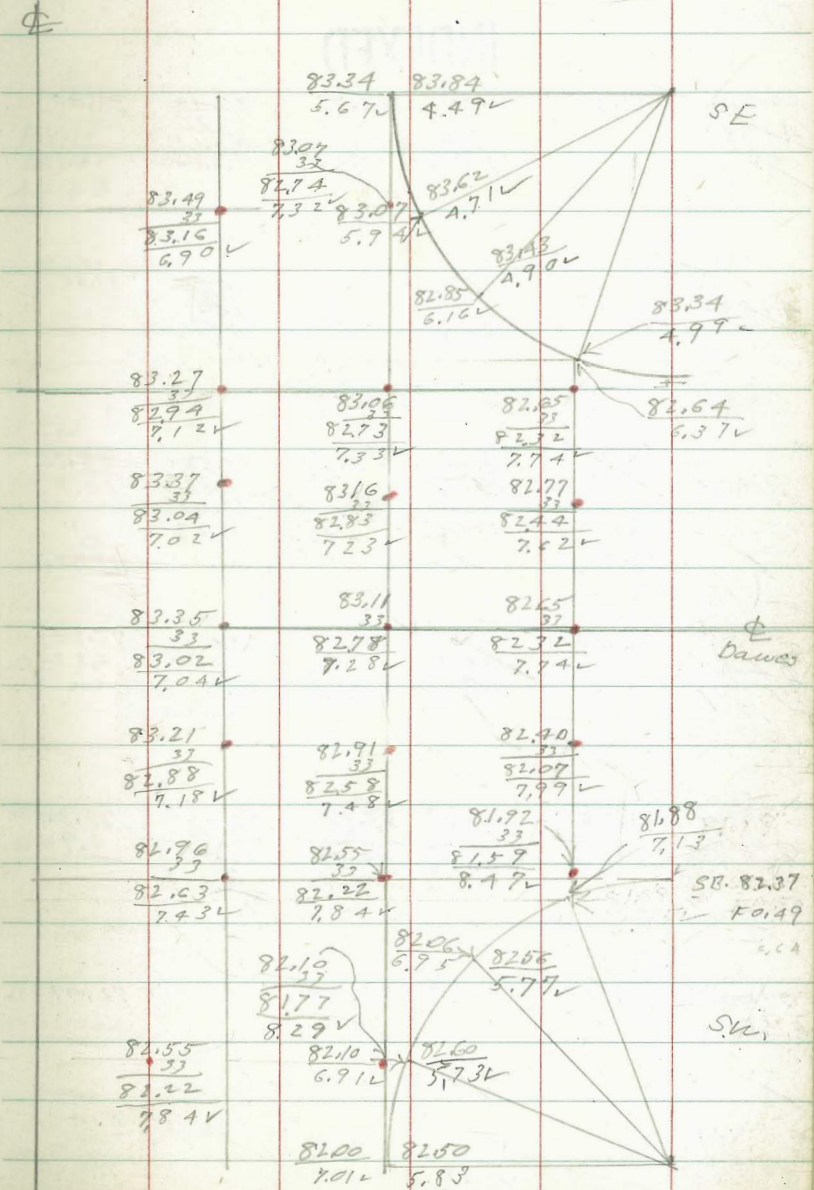 ℄
83.34 83.84
5.67✓ 4.49✓
SE
83.07
33
82.74
7.32✓
83.49
33
83.16
6.90✓
83.07
5.94✓
83.62
4.71✓
83.43
4.90✓
82.85
6.16✓
83.34
4.99✓
82.64
6.37✓
83.27
33
82.94
7.12✓
83.06
33
82.73
7.33✓
82.65
33
82.32
7.74✓
83.37
33
83.04
7.02✓
83.16
33
82.83
7.23✓
82.77
33
82.44
7.62✓
83.35
33
83.02
7.04✓
83.11
33
82.78
7.28✓
82.65
33
82.32
7.74✓
℄
Dawes
83.21
33
82.88
7.18✓
82.91
33
82.58
7.48✓
82.40
33
82.07
7.99✓
81.92
33
81.59
8.47✓
81.88
7.13
82.96
33
82.63
7.43✓
82.55
33
82.22
7.84✓
SB. 82.37
F0.49
82.06
6.95
82.56
5.77✓
82.10
33
81.77
8.29✓
S.W.
82.55
33
82.22
7.84✓
82.10
6.91✓
82.60
5.73✓
82.00 82.50
7.01✓ 5.83